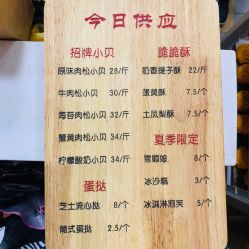 今日供应
招牌小贝
原味肉松小贝 28/斤
牛肉松小贝 30/斤
海苔肉松小贝 32/斤
蟹黄肉松小贝 34/斤
柠檬酸奶小贝 34/斤
蛋挞
芝士流心挞 8/个
葡式蛋挞 2.5/个
脆脆酥
奶香提子酥 22/斤
蛋黄酥 7.5/个
土凤梨酥 7.5/个
夏季限定
雪媚娘 8/个
冰沙糕 3/个
冰淇淋泡芙 5/个